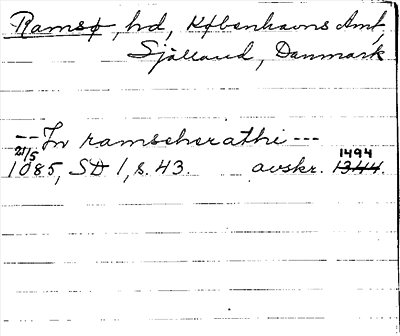 Ramsø, hd, Københavns Amt,
Sjælland, Danmark
-- In ramseherathi ---
21/5
1085, SD 1, s. 43. avskr. 1344. 1494